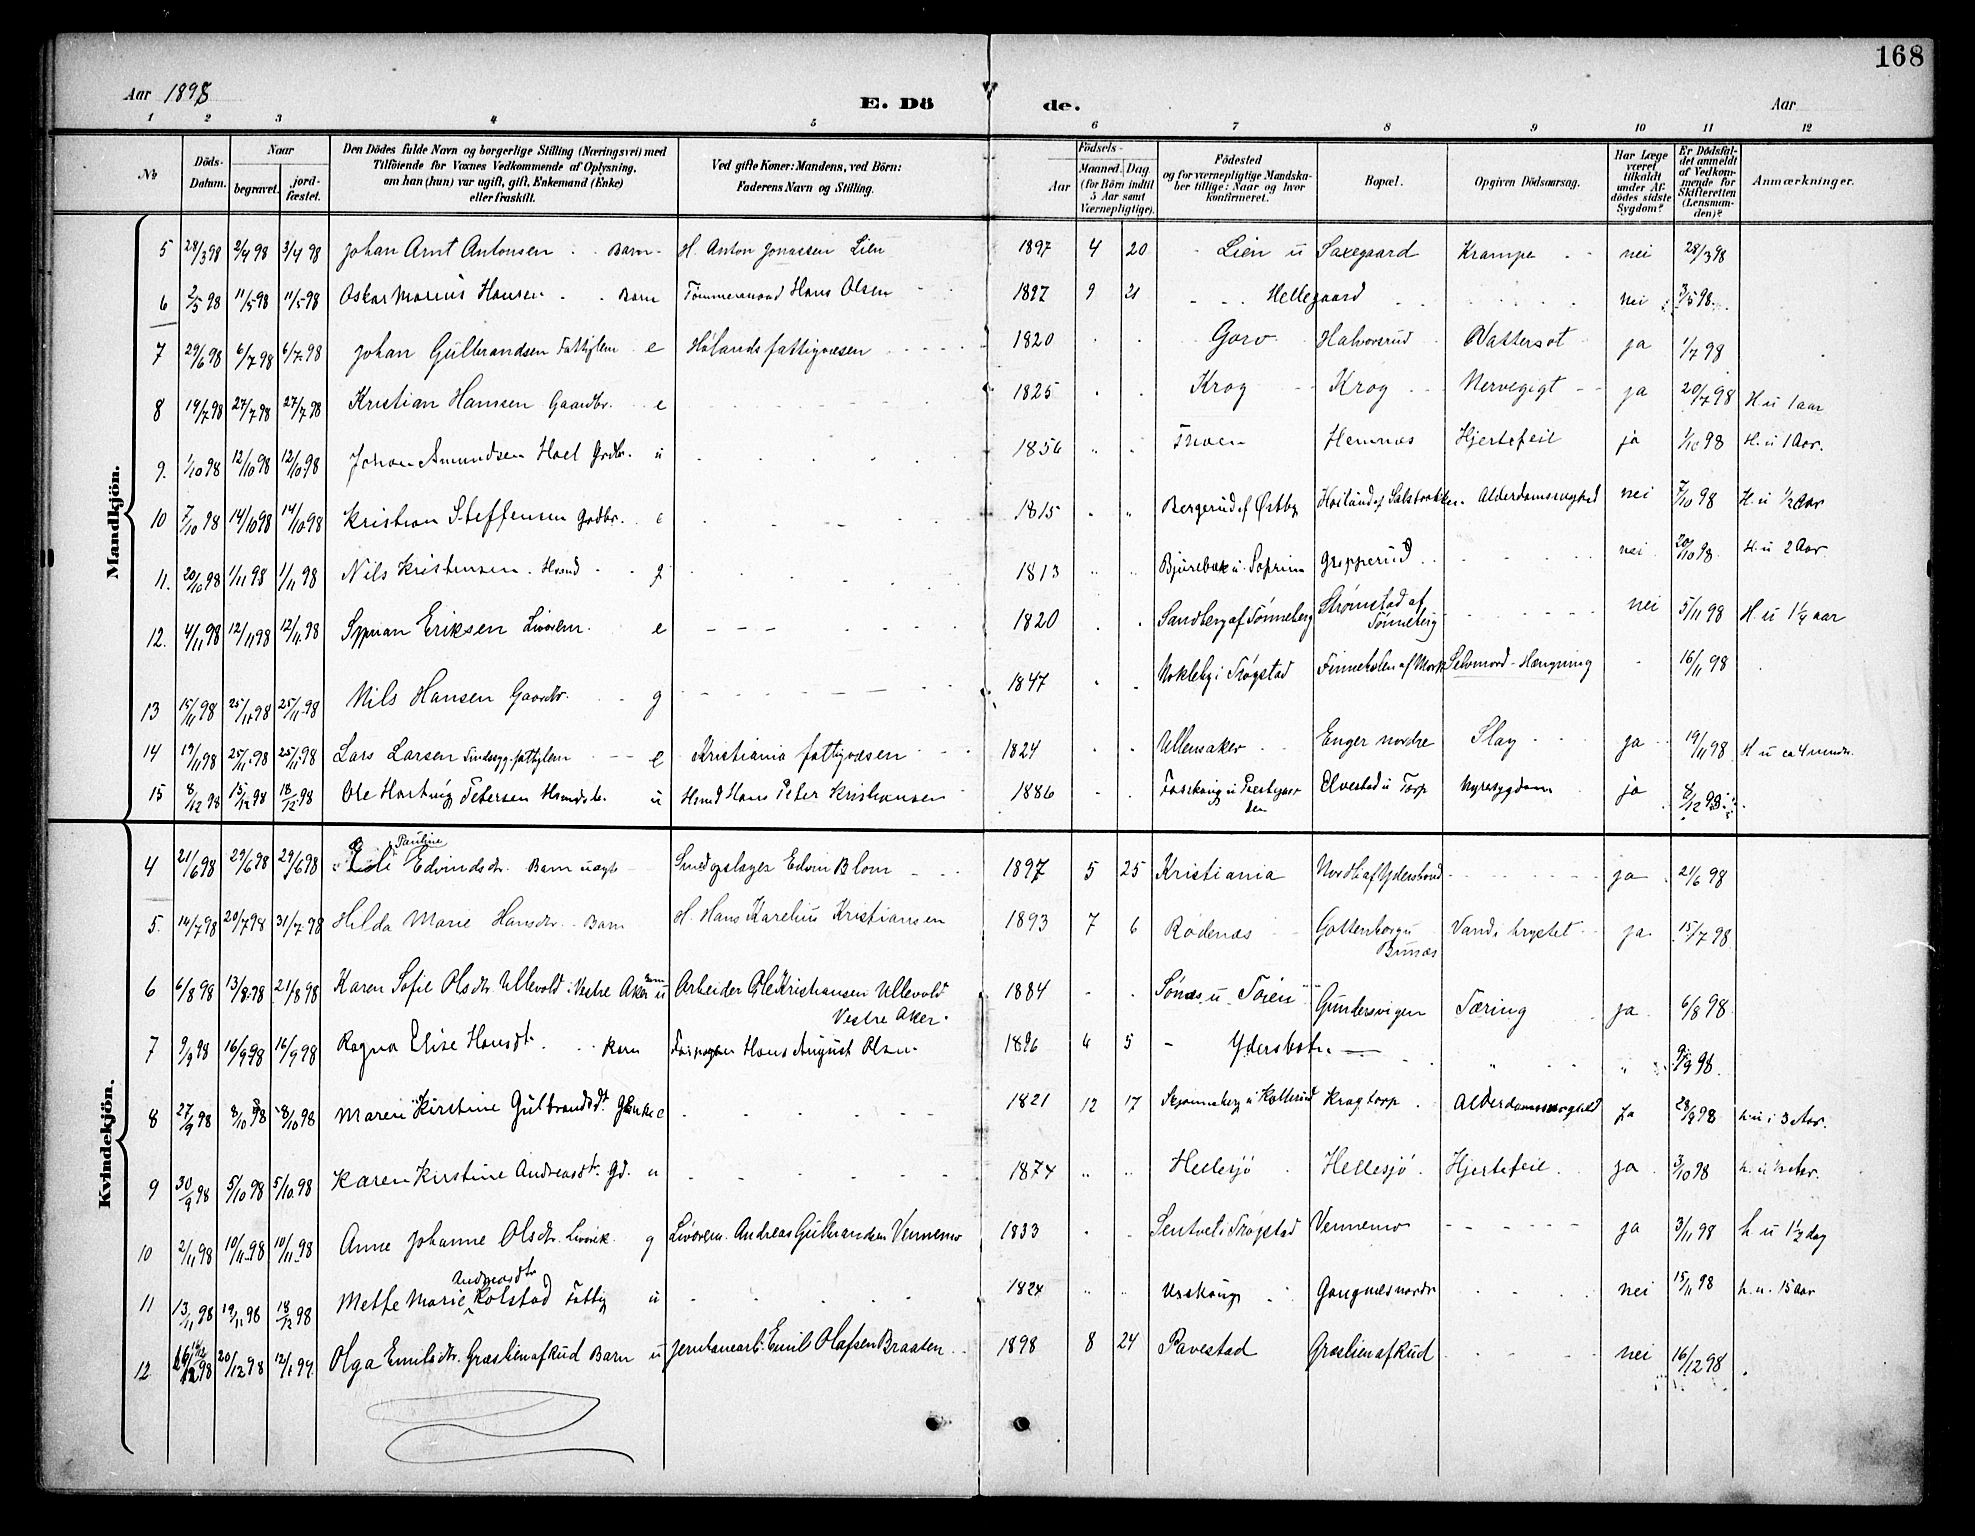 168
Aar 1898 E. Dö de. Aar
1 2 3 4 5 6 7 8 9 10 11 12
No Döds-Datum. Naar begravet. jordfæstet. Den Dödes fulde Navn og borgerlige Stilling (Næringsvei) med Tilföiende for Voxnes Vedkommende af Oplysning, om han (hun) var ugift, gift, Enkemand (Enke) eller fraskilt. Ved gifte Koner: Mandens, ved Börn: Faderens Navn og Stilling. Födsels- Aar Maaned. Dag (for Börn indtil 5 Aar samt Værnepligtige). Födested og for værnepligtige Mandskaber tillige: Naar og hvor konfirmeret. Bopæl. Opgiven Dödsaarsag. Har Læge været tilkaldt under Afdödes sidste Sygdom? Er Dödsfaldet anmeldt af Vedkommende for Skifteretten (Lensmanden)? Anmærkninger.
Mandkjön.
5 28/3 98 2/4 98 3/4 98 Johan Arnt Antonsen Barn H. Anton Jonassen Lien 1897 4 20 Lien u Saxegaard Krampe nei 28/3 98
6 2/5 98 11/5 98 11/5 98 Oskar Marius Hansen Barn Tømmermand Hans Olsen 1897 9 21 Hellegaard nei 3/5 98
7 29/6 98 6/7 98 6/7 98 Johan Gulbrandsen Fattiglem e Hølands fattigvæsen 1820 Gorv Halvorsrud Vattersot ja 1/7 98
8 19/7 98 27/7 98 27/7 98 Kristian Hansen Gaardbr. e 1825 Krog Krog Nervegigt ja 20/7 98 H. u 1 aar
9. 1/10 98 12/10 98 12/10 98 Johan Amundsen Hoel Grdbr. u 1856 Hemnæs Hjertefeil ja 1/10 98 H. u 1 Aar.
10 7/10 98 14/10 98 14/10 98 Kristian Steffensen Grdbr. e 1815 Bergerud af Østby Alderdomssvaghed nei 7/10 98 H. u 1/2 Aar
11. 20/10 98 1/11 98 1/11 98 Nils Kristensen Hsmd g 1813 Bjørebæk u. Soprim Grepperud nei 20/10 98 H. u 2 Aar
12. 4/11 98 12/11 98 12/11 98 Syprian Eriksen Livørem. e 1820 Sandberg af Tønneberg Strømstad af Tønneberg nei 5/11 98 H. u 1 1/4 aar
13 15/11 98 25/11 98 25/11 98 Nils Hansen Gaardbr. g 1847 Nokleby i Trøgstad Finneholen af Mork Selvmord - Hængning 16/11 98
14 19/11 98 25/11 98 25/11 98 Lars Larsen Sindssyg. fattiglem e Kristiania fattigvæsen 1824 Ullensaker Enger nordre Slag ja 19/11 98 H u ca 4 mndr.
15 8/12 98 15/12 98 18/12 98 Ole Hartvig Petersen u Hsmd Hans Peter Kristiansen 1886 Elvestad u Torp Nyresygdom ja 8/12 98
Kvindekjön.
4 21/6 98 29/6 98 29/6 98 Pauline Edvindsdtr. Barn uægte Smedoplager Edvin Blom 1897 5 25 Kristiania Nordli af Ydersbond ja 21/6 98
5. 14/7 98 20/7 98 31/7 98 Hilda Marie Hansdtr. Barn H. Hans Karelius Kristiansen 1893 7 6 Rødenæs Gottenborg u Bunæs Vand i brystet ja 15/7 98
6 6/8 98 13/8 98 21/8 98 Karen Sofie Olsdtr Ullevold i Vestre Aker Barn u Arbeider Ole Kristiansen Ullevold Vestre Aker. 1884 Sönæs u. Toien Gundersvigen Tæring ja 6/8 98
7 9/9 98 16/9 98 16/9 98 Ragna Elise Hansdt Barn Forpagter Hans August Olsen 1896 6 5 Ydersbotn 9/9 98
8 27/9 98 8/10 98 8/10 98 Maren Kirstine Gulbrandsdt. Genke e 1821 12 17 Skjønneberg u Kollerud Kragtorp Alderdomssvaghed ja 28/9 98 h. u. i 3 Aar.
9 30/9 98 5/10 98 5/10 98 Karen Kirstine Andreasdt. Gd. u 1874 Hellesjö Hellesjö Hjertefeil ja 3/10 98 h. u 1/2 Aar.
10 2/11 98 10/11 98 10/11 98 Anne Johanne Olsdtr. g Livørem. Andreas Gulbrandsen Vennemo 1833 Sentvet i Trøgstad Vennemo ja 3/11 98 h. u 1 1/2 dag
11 13/11 98 19/11 98 18/12 98 Mette Marie Andreasdtr Kolstad Fattig u 1824 Urskoug Gangnæs nordr nei 15/11 98 h. u. 15 aar
12 20/12 98 12/1 99 Olga Emilsdtr. Græslien af Rud Barn u Jernbanearb. Emil Olafsen Braaten 1898 8 24 Pavestad Græslien af Rud nei 16/12 98